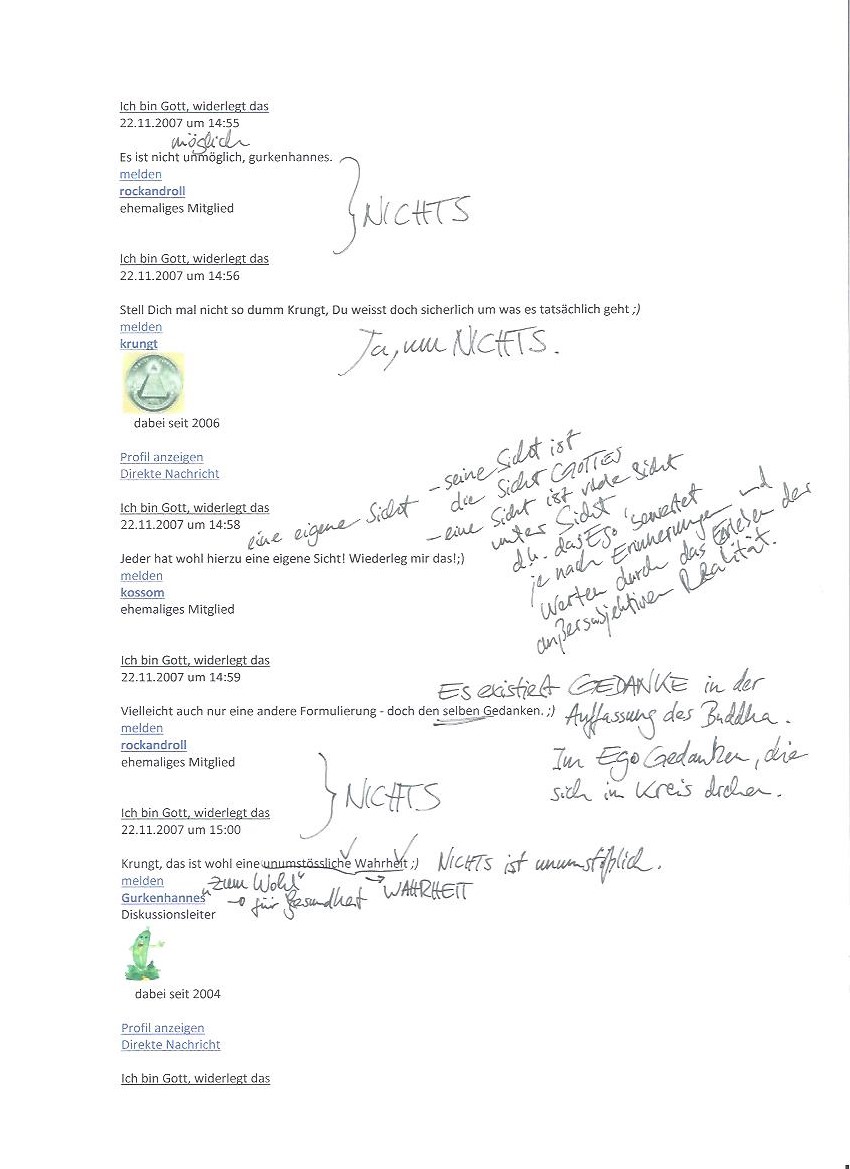 Ich bin Gott, widerlegt das
22.11.2007 um 14:55
möglich
Es ist nicht unmöglich, gurkenhannes.
melden
rockandroll
ehemaliges Mitglied
NICHTS
Ich bin Gott, widerlegt das
22.11.2007 um 14:56
Stell Dich mal nicht so dumm Krungt, Du weisst doch sicherlich um was es tatsächlich geht ;)
melden
krungt
Ja, um NICHTS.
dabei seit 2006
Profil anzeigen
Direkte Nachricht
Ich bin Gott, widerlegt das
22.11.2007 um 14:58
eine eigene Sicht
- seine Sicht ist
die Sicht GOTTES
- eine Sicht ist viele Sicht
unter Sicht
d.h. das Ego bewertet
je nach Erinnerungen und
Werten durch das Erleben der
außersubjektiven Realität.
Jeder hat wohl hierzu eine eigene Sicht! Wiederleg mir das!;)
melden
kossom
ehemaliges Mitglied
Ich bin Gott, widerlegt das
22.11.2007 um 14:59
Es existiert GEDANKE in der
Auffassung des Buddha.
Im Ego Gedanken, die
sich im Kreis drehen.
Vielleicht auch nur eine andere Formulierung - doch den selben Gedanken. ;)
melden
rockandroll
ehemaliges Mitglied
NICHTS
Ich bin Gott, widerlegt das
22.11.2007 um 15:00
Krungt, das ist wohl eine unumstössliche Wahrheit ;)
NICHTS ist unumstößlich.
melden
"Zum Wohl"
→ für Gesundheit
→ WAHRHEIT
Gurkenhannes
Diskussionsleiter
dabei seit 2004
Profil anzeigen
Direkte Nachricht
Ich bin Gott, widerlegt das